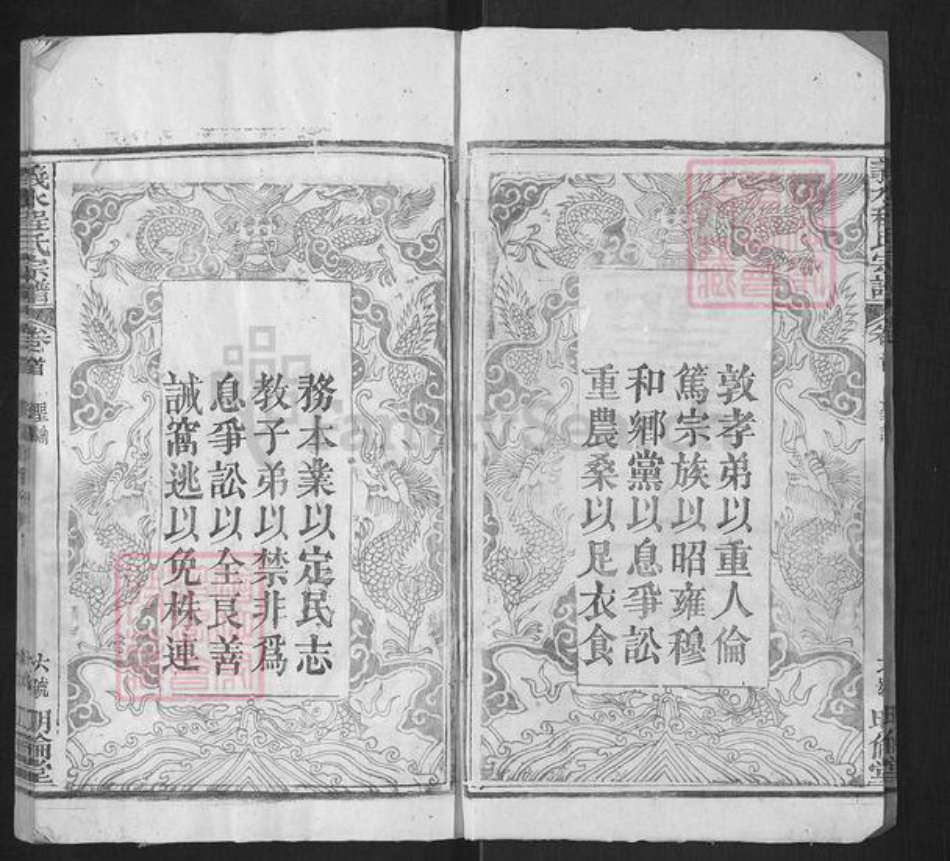 敦孝弟以重人倫
篤宗族以昭雍穆
和鄉黨以息爭訟
重農桑以足衣食
務本業以定民志
教子弟以禁非爲
息爭訟以全良善
誡窩逃以免株連
義水程氏宗譜
卷首
聖諭
六號
明倫堂